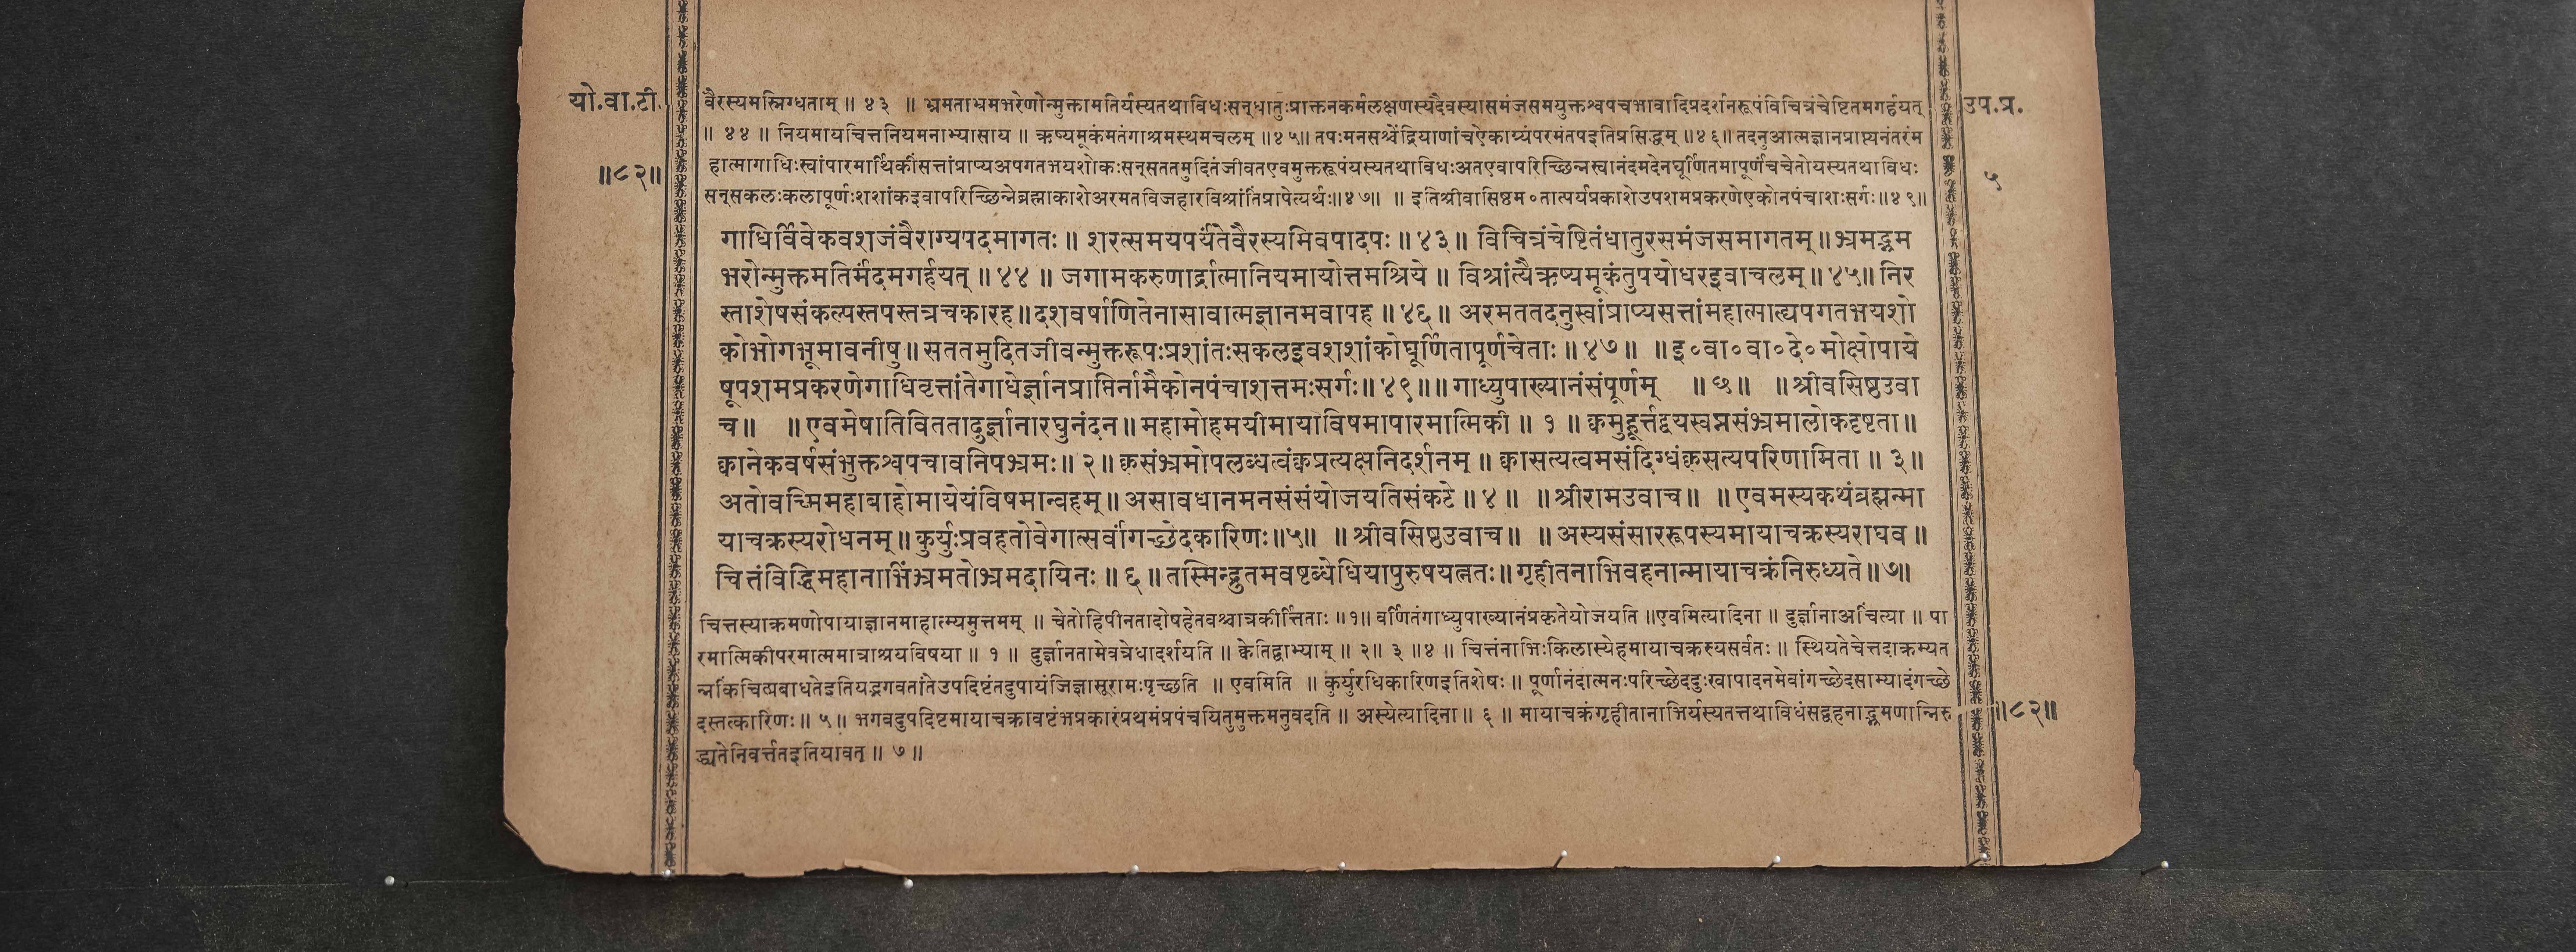 यो.वा.टी.
॥८२॥
वैरस्यमस्निग्धताम् ॥ ४३ ॥ भ्रमताभ्रमभरेणोन्मुक्तामतिर्यस्यतथाविधःसन्धातुःप्राक्तनकर्मलक्षणस्यदैवस्यासमंजसमयुक्तश्वपचभावादिप्रदर्शनरूपंविचित्रंचेष्टितमगर्हयत्
॥ ४४ ॥ नियमायचित्तनियमनाभ्यासाय ॥ ऋष्यमूकंमतंगाश्रमस्थमचलम् ॥४५॥ तपःमनसश्चेंद्रियाणांचऐकाग्र्यंपरमंतपइतिप्रसिद्धम् ॥४६॥ तदनुआत्मज्ञानप्राप्त्यनंतरंम
हात्मागाधिःस्वांपारमार्थिकींसत्तांप्राप्यअपगतभयशोकःसन्सततमुदितंजीवतएवमुक्तरूपंयस्यतथाविधःअतएवापरिच्छिन्नस्वानंदमदेनघूर्णितमापूर्णंचचेतोयस्यतथाविधः
सन्सकलःकलापूर्णःशशांकइवापरिच्छिन्नेब्रह्माकाशेअरमतविजहारविश्रांतिंप्रापेत्यर्थः॥४७॥ ॥ इतिश्रीवासिष्ठम०तात्पर्यप्रकाशेउपशमप्रकरणेएकोनपंचाशःसर्गः॥४९॥
गाधिर्विवेकवशजंवैराग्यपदमागतः ॥ शरत्समयपर्यंतेवैरस्यमिवपादपः ॥ ४३ ॥ विचित्रंचेष्टितंधातुरसमंजसमागतम् ॥ भ्रमद्भ्रम
भरोन्मुक्तमतिर्मंदमगर्हयत् ॥ ४४ ॥ जगामकरुणार्द्रात्मानियमायोत्तमश्रिये ॥ विश्रांत्यैऋष्यमूकंतुपयोधरइवाचलम् ॥ ४५॥ निर
स्ताशेषसंकल्पस्तपस्तत्रचकारह॥ दशवर्षाणितेनासावात्मज्ञानमवापह ॥ ४६ ॥ अरमततदनुस्वांप्राप्यसत्तांमहात्मात्व्यपगतभयशो
कोभोगभूमावनीषु ॥ सततमुदितजीवन्मुक्तरूपःप्रशांतःसकलइवशशांकोघूर्णितापूर्णचेताः ॥ ४७ ॥ ॥ इ०वा०वा०दे०मोक्षोपाये
षूपशमप्रकरणेगाधिवृत्तांतेगाधेर्ज्ञानप्राप्तिर्नामैकोनपंचाशत्तमःसर्गः॥ ४९ ॥ ॥ गाध्युपाख्यानंसंपूर्णम् ॥ ७ ॥ ॥ श्रीवसिष्ठउवा
च ॥ ॥ एवमेषातिविततादुर्ज्ञानारघुनंदन ॥ महामोहमयीमायाविषमापारमात्मिकी ॥ १ ॥ क्वमुहूर्त्तद्वयस्वप्नसंभ्रमालोकदृष्टता ॥
क्वानेकवर्षसंभुक्तश्वपचावनिपभ्रमः ॥ २ ॥ क्वसंभ्रमोपलब्धत्वंक्वप्रत्यक्षनिदर्शनम् ॥ क्वासत्यत्वमसंदिग्धंक्वसत्यपरिणामिता ॥ ३ ॥
अतोवच्मिमहाबाहोमायेयंविषमान्वहम् ॥ असावधानमनसंसंयोजयतिसंकटे ॥ ४ ॥ ॥ श्रीरामउवाच ॥ ॥ एवमस्यकथंब्रह्मन्मा
याचक्रस्यरोधनम् ॥ कुर्युःप्रवहतोवेगात्सर्वांगच्छेदकारिणः ॥५॥ ॥ श्रीवसिष्ठउवाच ॥ ॥ अस्यसंसाररूपस्यमायाचक्रस्यराघव ॥
चित्तंविद्धिमहानाभिंभ्रमतोभ्रमदायिनः ॥ ६ ॥ तस्मिन्द्रुतमवष्टब्धेधियापुरुषयत्नतः॥ गृहीतनाभिवहनान्मायाचक्रंनिरुध्यते ॥ ७॥
चित्तस्याक्रमणोपायाज्ञानमाहात्म्यमुत्तमम् ॥ चेतोहिपीनतादोषहेतवश्चात्रकीर्त्तिताः ॥१॥ वर्णितंगाध्युपाख्यानंप्रकृतेयोजयति ॥एवमित्यादिना ॥ दुर्ज्ञानाअचिंत्या ॥ पा
रमात्मिकीपरमात्ममात्राश्रयविषया ॥ १ ॥ दुर्ज्ञानतामेवत्रेधादर्शयति ॥ क्वेतिद्वाभ्याम् ॥ २॥ ३ ॥४ ॥ चित्तंनाभिःकिलास्येहमायाचक्रस्यसर्वतः ॥ स्थियतेचेत्तदाक्रम्यत
न्नकिंचित्प्रबाधतेइतियद्भगवतांतेउपदिष्टंतदुपायंजिज्ञासूरामःपृच्छति ॥ एवमिति ॥ कुर्युरधिकारिणइतिशेषः ॥ पूर्णानंदात्मनःपरिच्छेददुःखापादनमेवांगच्छेदसाम्यादंगच्छे
दस्तत्कारिणः ॥ ५ ॥ भगवदुपदिष्टमायाचक्रावष्टंभप्रकारंप्रथमंप्रपंचयितुमुक्तमनुवदति ॥ अस्येत्यादिना ॥ ६ ॥ मायाचक्रंगृहीतानाभिर्यस्यतत्तथाविधंसद्वहनाद्भ्रमणान्निरु
द्ध्यतेनिवर्त्ततइतियावत् ॥ ७ ॥
उप.प्र.
५
॥८२॥